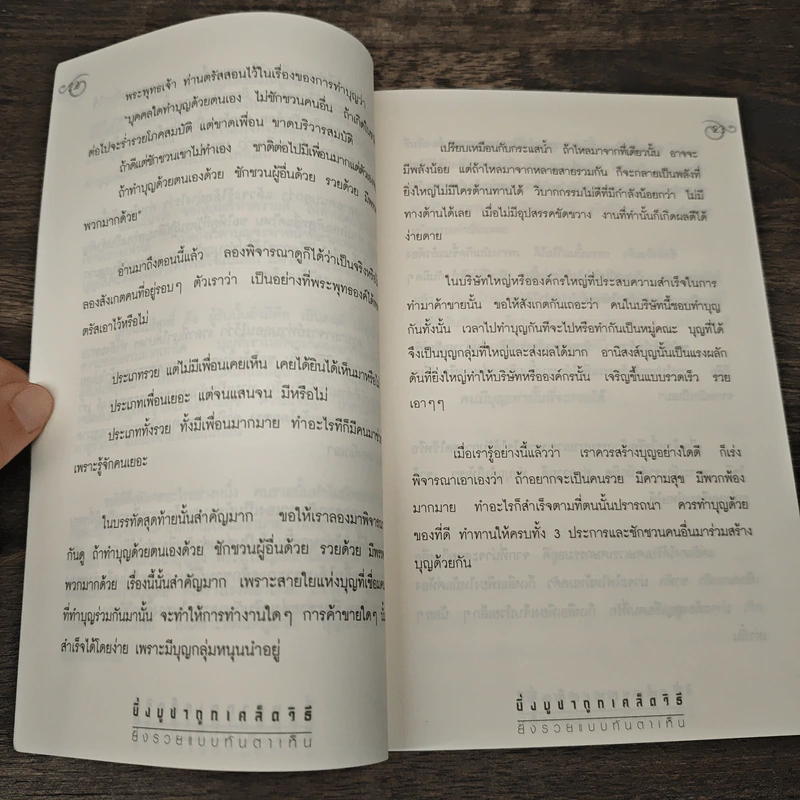 พระพุทธเจ้า ท่านตรัสสอนไว้ในเรื่องของการทำบุญว่า
"บุคคลใดทำบุญด้วยตนเอง ไม่ชักชวนคนอื่น ถ้าเกิดใน
ต่อไปจะร่ำรวยโภคสมบัติ แต่ขาดเพื่อน ขาดบริวารสมบัติ
ถ้าดีแต่ชักชวนเขาไม่ทำเอง ชาติต่อไปมีเพื่อนมากแต่ตัว
ถ้าทำบุญด้วยตนเองด้วย ชักชวนผู้อื่นด้วย รวยด้วย
พวกมากด้วย"
อ่านมาถึงตอนนี้แล้ว ลองพิจารณาดูก็ได้ว่าเป็นจริงหรือ
ลองสังเกตคนที่อยู่รอบๆ ตัวเราว่า เป็นอย่างที่พระพุทธองค์
ตรัสเอาไว้หรือไม่
ประเภทรวย แต่ไม่มีเพื่อนเคยเห็น เคยได้ยินได้เห็นมาหรือ
ประเภทเพื่อนเยอะ แต่จนแสนจน มีหรือไม่
ประเภททั้งรวย ทั้งมีเพื่อนมากมาย ทำอะไรทีก็มีคนมา
เพราะรู้จักคนเยอะ
ในบรรทัดสุดท้ายนั้นสำคัญมาก ขอให้เราลองมาพิจารณา
กันดู ถ้าทำบุญด้วยตนเองด้วย ชักชวนผู้อื่นด้วย รวยด้วย
พวกมากด้วย เรื่องนี้นั้นสำคัญมาก เพราะสายใยแห่งบุญที่เชื่อม
ที่ทำบุญร่วมกันมานั้น จะทำให้การทำงานใดๆ การค้าขายใดๆ
สำเร็จได้โดยง่าย เพราะมีบุญกลุ่มหนุนนำอยู่
นิ่งบูชาถูกเคล็ดวิธี
ยิ่งรวยแบบทันตาเห็น
เปรียบเหมือนกับกระแสน้ำ ถ้าไหลมาจากที่เดียวนั้น อาจจะ
มีพลังน้อย แต่ถ้าไหลมาจากหลายสายรวมกัน ก็จะกลายเป็นพลังที่
ยิ่งใหญ่ไม่มีใครต้านทานได้ วิบากกรรมไม่ดีที่มีกำลังน้อยกว่า ไม่มี
ทางต้านได้เลย เมื่อไม่มีอุปสรรคขัดขวาง งานที่ทำนั้นก็เกิดผลดีได้
ง่ายดาย
ในบริษัทใหญ่หรือองค์กรใหญ่ที่ประสบความสำเร็จในการ
ทำมาค้าขายนั้น ขอให้สังเกตกันเถอะว่า คนในบริษัทนี้ชอบทำบุญ
กันทั้งนั้น เวลาไปทำบุญกันทีจะไปหรือทำกันเป็นหมู่คณะ บุญที่ได้
จึงเป็นบุญกลุ่มที่ใหญ่และส่งผลได้มาก อานิสงส์บุญนั้นเป็นแรงผลัก
ดันที่ยิ่งใหญ่ทำให้บริษัทหรือองค์กรนั้น เจริญขึ้นแบบรวดเร็ว รวย
เอาๆๆ
เมื่อเรารู้อย่างนี้แล้วว่า เราควรสร้างบุญอย่างใดดี ก็เร่ง
พิจารณาเอาเองว่า ถ้าอยากจะเป็นคนรวย มีความสุข มีพวกพ้อง
มากมาย ทำอะไรก็สำเร็จตามที่ตนนั้นปรารถนา ควรทำบุญด้วย
ของที่ดี ทำทานให้ครบทั้ง 3 ประการและชักชวนคนอื่นมาร่วมสร้าง
บุญด้วยกัน
นิ่งบูชาถูกเคล็ดวิธี
ยิ่งรวยแบบทันตาเห็น